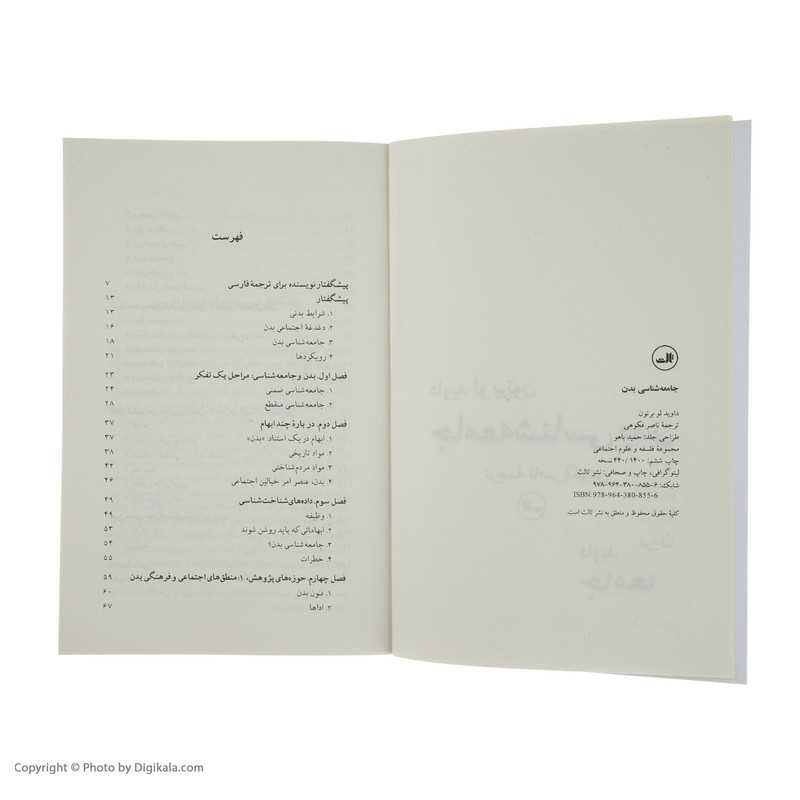 ثالث
جامعه‌شناسی بدن
داوید لو برتون
ترجمهٔ ناصر فکوهی
طراحی جلد: حمید باهو
مجموعهٔ فلسفه و علوم اجتماعی
چاپ ششم: ۱۴۰۰ / ۴۴۰ نسخه
لیتوگرافی، چاپ و صحافی: نشر ثالث
شابک: ۶-۸۵۵-۳۸۰-۹۶۴-۹۷۸
ISBN: 978-964-380-855-6
کلیهٔ حقوق محفوظ و متعلق به نشر ثالث است.
فهرست
پیشگفتار نویسنده برای ترجمهٔ فارسی ۷
پیشگفتار ۱۳
۱. شرایط بدنی ۱۳
۲. دغدغهٔ اجتماعی بدن ۱۶
۳. جامعه‌شناسی بدن ۱۸
۴. رویکردها ۲۱
فصل اول. بدن و جامعه‌شناسی: مراحل یک تفکر ۲۳
۱. جامعه‌شناسی ضمنی ۲۴
۲. جامعه‌شناسی منقطع ۲۸
فصل دوم. در بارهٔ چند ابهام ۳۷
۱. ابهام در یک استناد: «بدن» ۳۷
۲. مواد تاریخی ۳۸
۳. مواد مردم‌شناختی ۴۲
۴. بدن، عنصر امر خیالین اجتماعی ۴۶
فصل سوم. داده‌های شناخت‌شناسی ۴۹
۱. وظیفه ۴۹
۲. ابهاماتی که باید روشن شوند ۵۳
۳. جامعه‌شناسی بدن؟ ۵۴
۴. خطرات ۵۵
فصل چهارم. حوزه‌های پژوهش، ۱: منطق‌های اجتماعی و فرهنگی بدن ۵۹
۱. فنون بدن ۶۰
۲. اداها ۶۷
Copyright © Photo by Digikala.com